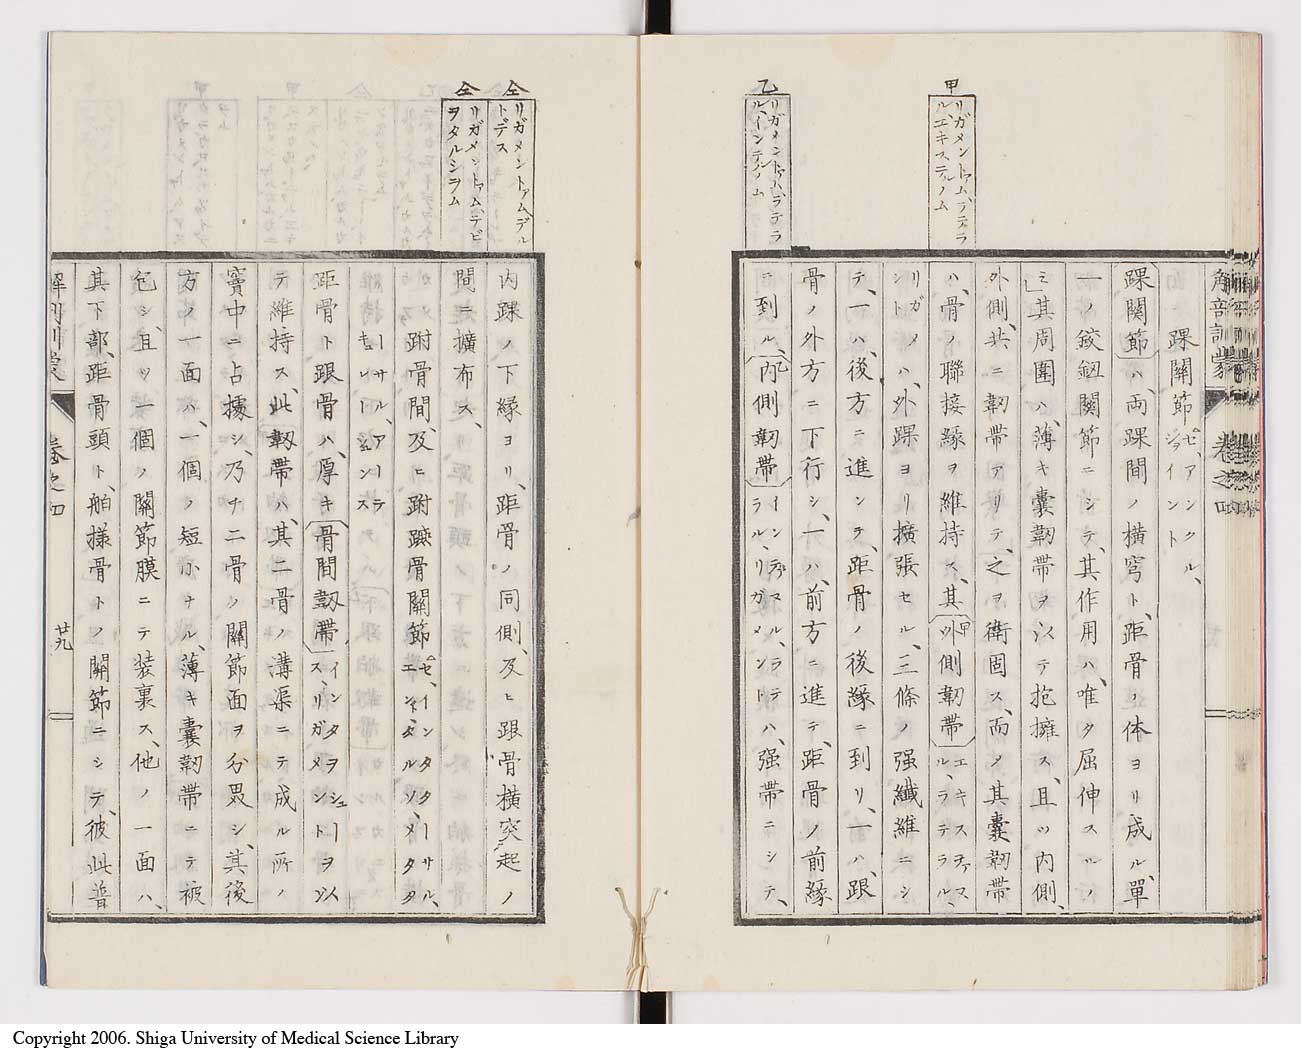 甲
リガメントァム、ラテラ
ル、エキステルノム
乙
リガメントァム、ラテラ
ル、インテルノム
解剖訓蒙
卷之四
踝關節 ゼ、アンクル、ジョイント
踝關節ハ、両踝間ノ横穹ト、距骨ノ体ヨリ成ル、單
一ノ鉸鈕關節ニシテ、其作用ハ、唯タ屈伸スルノ
ミ、其周圍ハ、薄キ囊靱帯ヲ以テ抱擁ス、且ツ内側、
外側、共ニ靱帯アリテ、之ヲ衛固ス、而ノ其囊靱帯
ハ、骨ノ聯接縁ヲ維持ス、其外側靱帯
リガメントハ、外踝ヨリ擴張セル、三條ノ强纖維ニシ
テ、一ハ、後方ニ進ンテ、距骨ノ後縁ニ到リ、一ハ、跟
骨ノ外方ニ下行シ、一ハ、前方ニ進テ、距骨ノ前縁
ニ到ル、内側靱帯 ラル、リガメントハ、强帯ニシテ、
仝
リガメントァム、デル
トデス
仝
リガメントァム、テビ
ヲタルシヲム
内踝ノ下縁ヨリ、距骨ノ同側、及ヒ跟骨横突起ノ
間ニ擴布ス、
跗骨間、及ヒ跗蹠骨關節
距骨ト跟骨ハ、厚キ骨間靱帯
テ維持ス、此靱帯ハ、其二骨ノ溝渠ニテ成ル所ノ
竇中ニ占據シ、乃チ二骨ノ關節面ヲ分畏シ、其後
方ノ一面ハ、一個ノ短小ナル、薄キ囊靱帯ニテ被
包シ、且ツ一個ノ關節膜ニテ装裏ス、他ノ一面ハ、
其下部、距骨頭ト、舶様骨トノ關節ニシテ、彼此普
卷之四
廿九
Copyright 2006. Shiga University of Medical Science Library